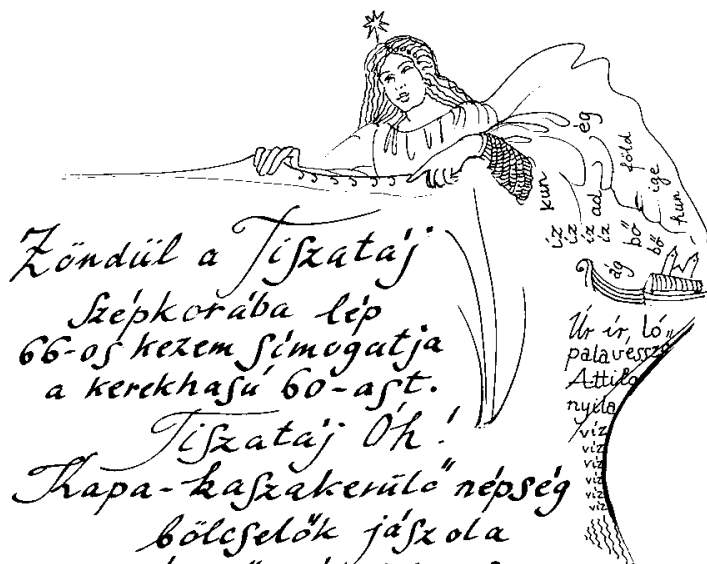 Zöndül a Tiszatáj
szépkorába lép
66-os kezem simogatja
a kerekhasú 60-ast.
Tiszatáj Óh!
Kapa-kaszakerülő népség
bölcselők jászola
ég
föld
ige
hun
kun
ad
íz
íz
íz
íz
bő
bő
ág
Úr ír, ló
palavessző
Attila
nyila
víz
víz
víz
víz
víz
víz